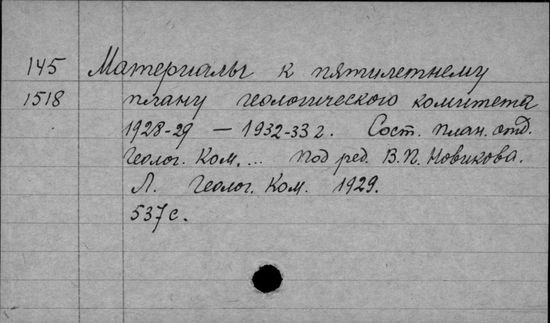 145 Материалы к пятилетнему
1518 плану геологического комитета
1928-29 — 1932-33 г. Сост. план. отд.
Геолог. Ком. ... Под ред. В.П. Новикова.
Л. Геолог. Ком. 1929.
537 с.